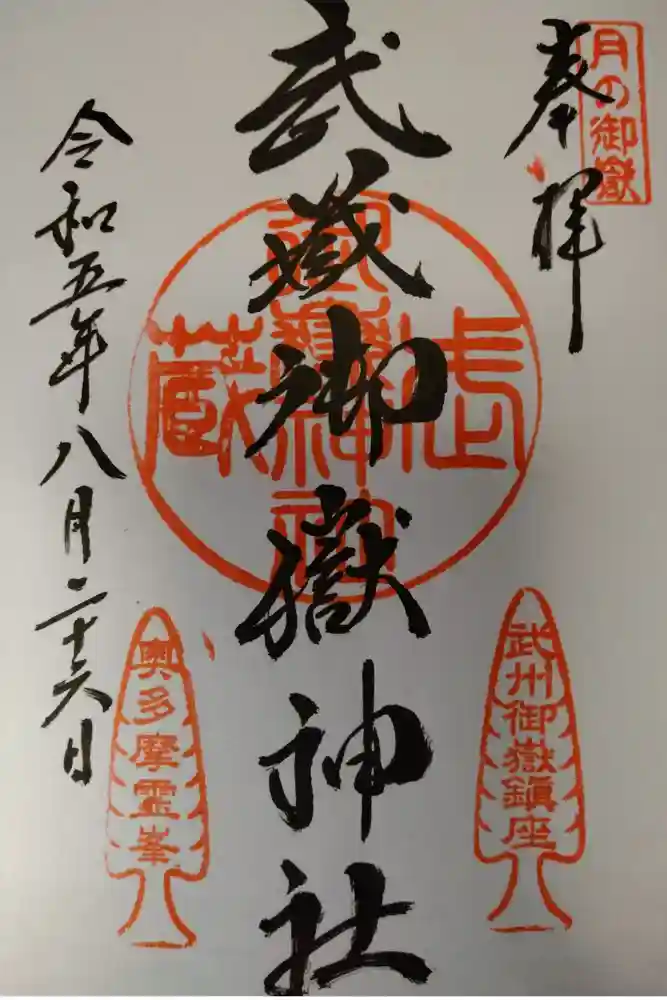 月の御嶽
奉拝
武蔵御嶽神社
令和五年八月二十六日
武州御嶽鎮座
奥多摩霊峯
武
蔵